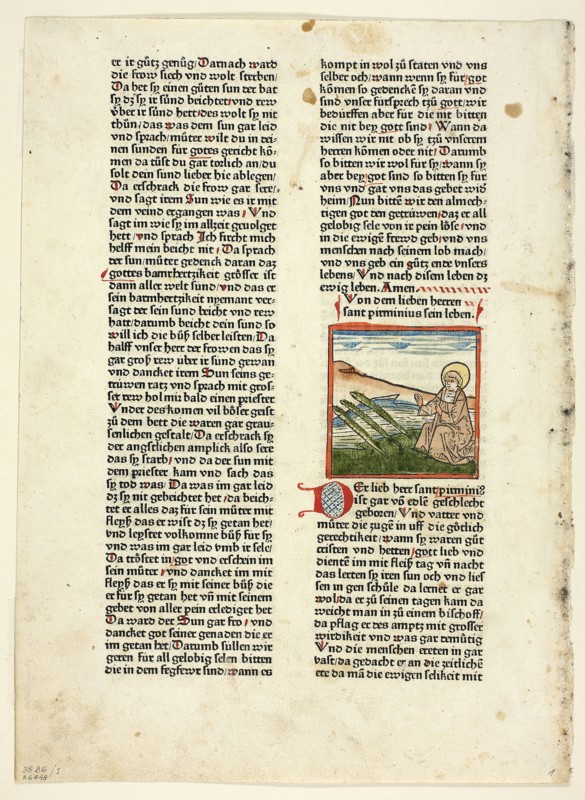 er ir gůtz genůg/Darnach ward
die frow siech vnd wolt sterben/
Da het sy einen gůten sun der bat
sy dz sy ir sünd beichtet/vnd rew
vber ir sünd hett/des wolt sy nit
thůn/das was dem sun gar leid
vnd sprach/můter wilt du in dei-
nen sunden für gottes gericht kō-
men da tůst du gar torlich an/du
solt dein sund lieber hie ablegen/
Da erschrack die frow gar sere/
vnd sagt irem Sun wie es ir mit
dem veind ergangen was/Vnd
sagt im wie sy im allzeit geuolget
hett/vnd sprach Ich fircht mich
helff mein beicht nit/Da sprach
der sun/můter gedenck daran daz
gottes barmhertzikeit grösser ist
dann aller welt sund/vnd das er
sein barmhertzikeit nyemant ver-
sagt der sein sund beicht vnd rew
hatt/darumb beicht dein sünd so
will ich die bůß selber leisten/Da
halff vnser herr der frowen das sy
gar groß rew vber ir sund gewan
vnd dancket irem Sun seins ge-
trüwen ratz vnd sprach mit gros-
ser rew hol mir bald einen priester
Vnder des komen vil böser geist
zů dem bett die waren gar grau-
senlichen gestalt/Da erschrack sy
der angstlichen amplick also sere
das sy starb/vnd da der sun mit
dem priester kam vnd sach das
sy tod was/Da was im gar leid
dz sy nit gebeichtet het/da beich-
tet er alles daz für sein můter mit
fleyß das er wist dz sy getan het/
vnd leystet volkomne bůß für sy
vnd was im gar leid vmb ir sele/
Da tröstet in got vnd erschein im
sein můter/vnd dancket im mit
fleyß das er sy mit seiner bůß die
er für sy getan het vn̄ mit seinem
gebet von aller pein erlediget het
Da ward der Sun gar fro/vnd
dancket got seiner genaden die er
im getan het/Darumb sullen wir
geren für all gelobig selen bitten
die in dem fegfewr sind/wann es
kompt in wol zů staten vnd vns
selber och/wann wenn sy für got
kōmen so gedenckē sy daran vnd
sind vnser fürsprech tzů gott/wir
bedürffen aber für die nit bitten
die nit bey gott sind/Wann da
wissen wir nit ob sy tzů vnserem
herren kōmen oder nit/Darumb
so bitten wir wol für sy/wann sy
aber bey got sind so bitten sy für
vns vnd gat vns das gebet wid
heim/Nun bittē wir den almech-
tigen got den getrüwen/daz er all
gelobig sele von ir pein löse/vnd
in die ewige frewd geb/vnd vns
menschen nach seinem lob mach/
vnd vns geb ein gůtz ende vnsers
lebens/Vnd nach disem leben dz
ewig leben. Amen
Von dem lieben herren
sant pirminius sein leben.
DEr lieb herr sant pirminiꝰ
ist gar vō edlē geschlecht
geboren/Vnd vatter vnd
můter die zugē in uff die götlich
gerechtikeit/wann sy waren gůt
cristen vnd hetten/gott lieb vnd
dientē im mit fleiß tag vn̄ nacht
das lerten sy iren sun och vnd lies
sen in gen schůle da lernet er gar
wol/da er zů seinen tagen kam da
weicht man in zů einem bischoff/
da pflag er des amptz mit grosser
wirdikeit vnd was gar demůtig
Vnd die menschen ereten in gar
vast/da gedacht er an die zeitlichē
ere da mā die ewigen selikeit mit
38.86/1
R6448
1